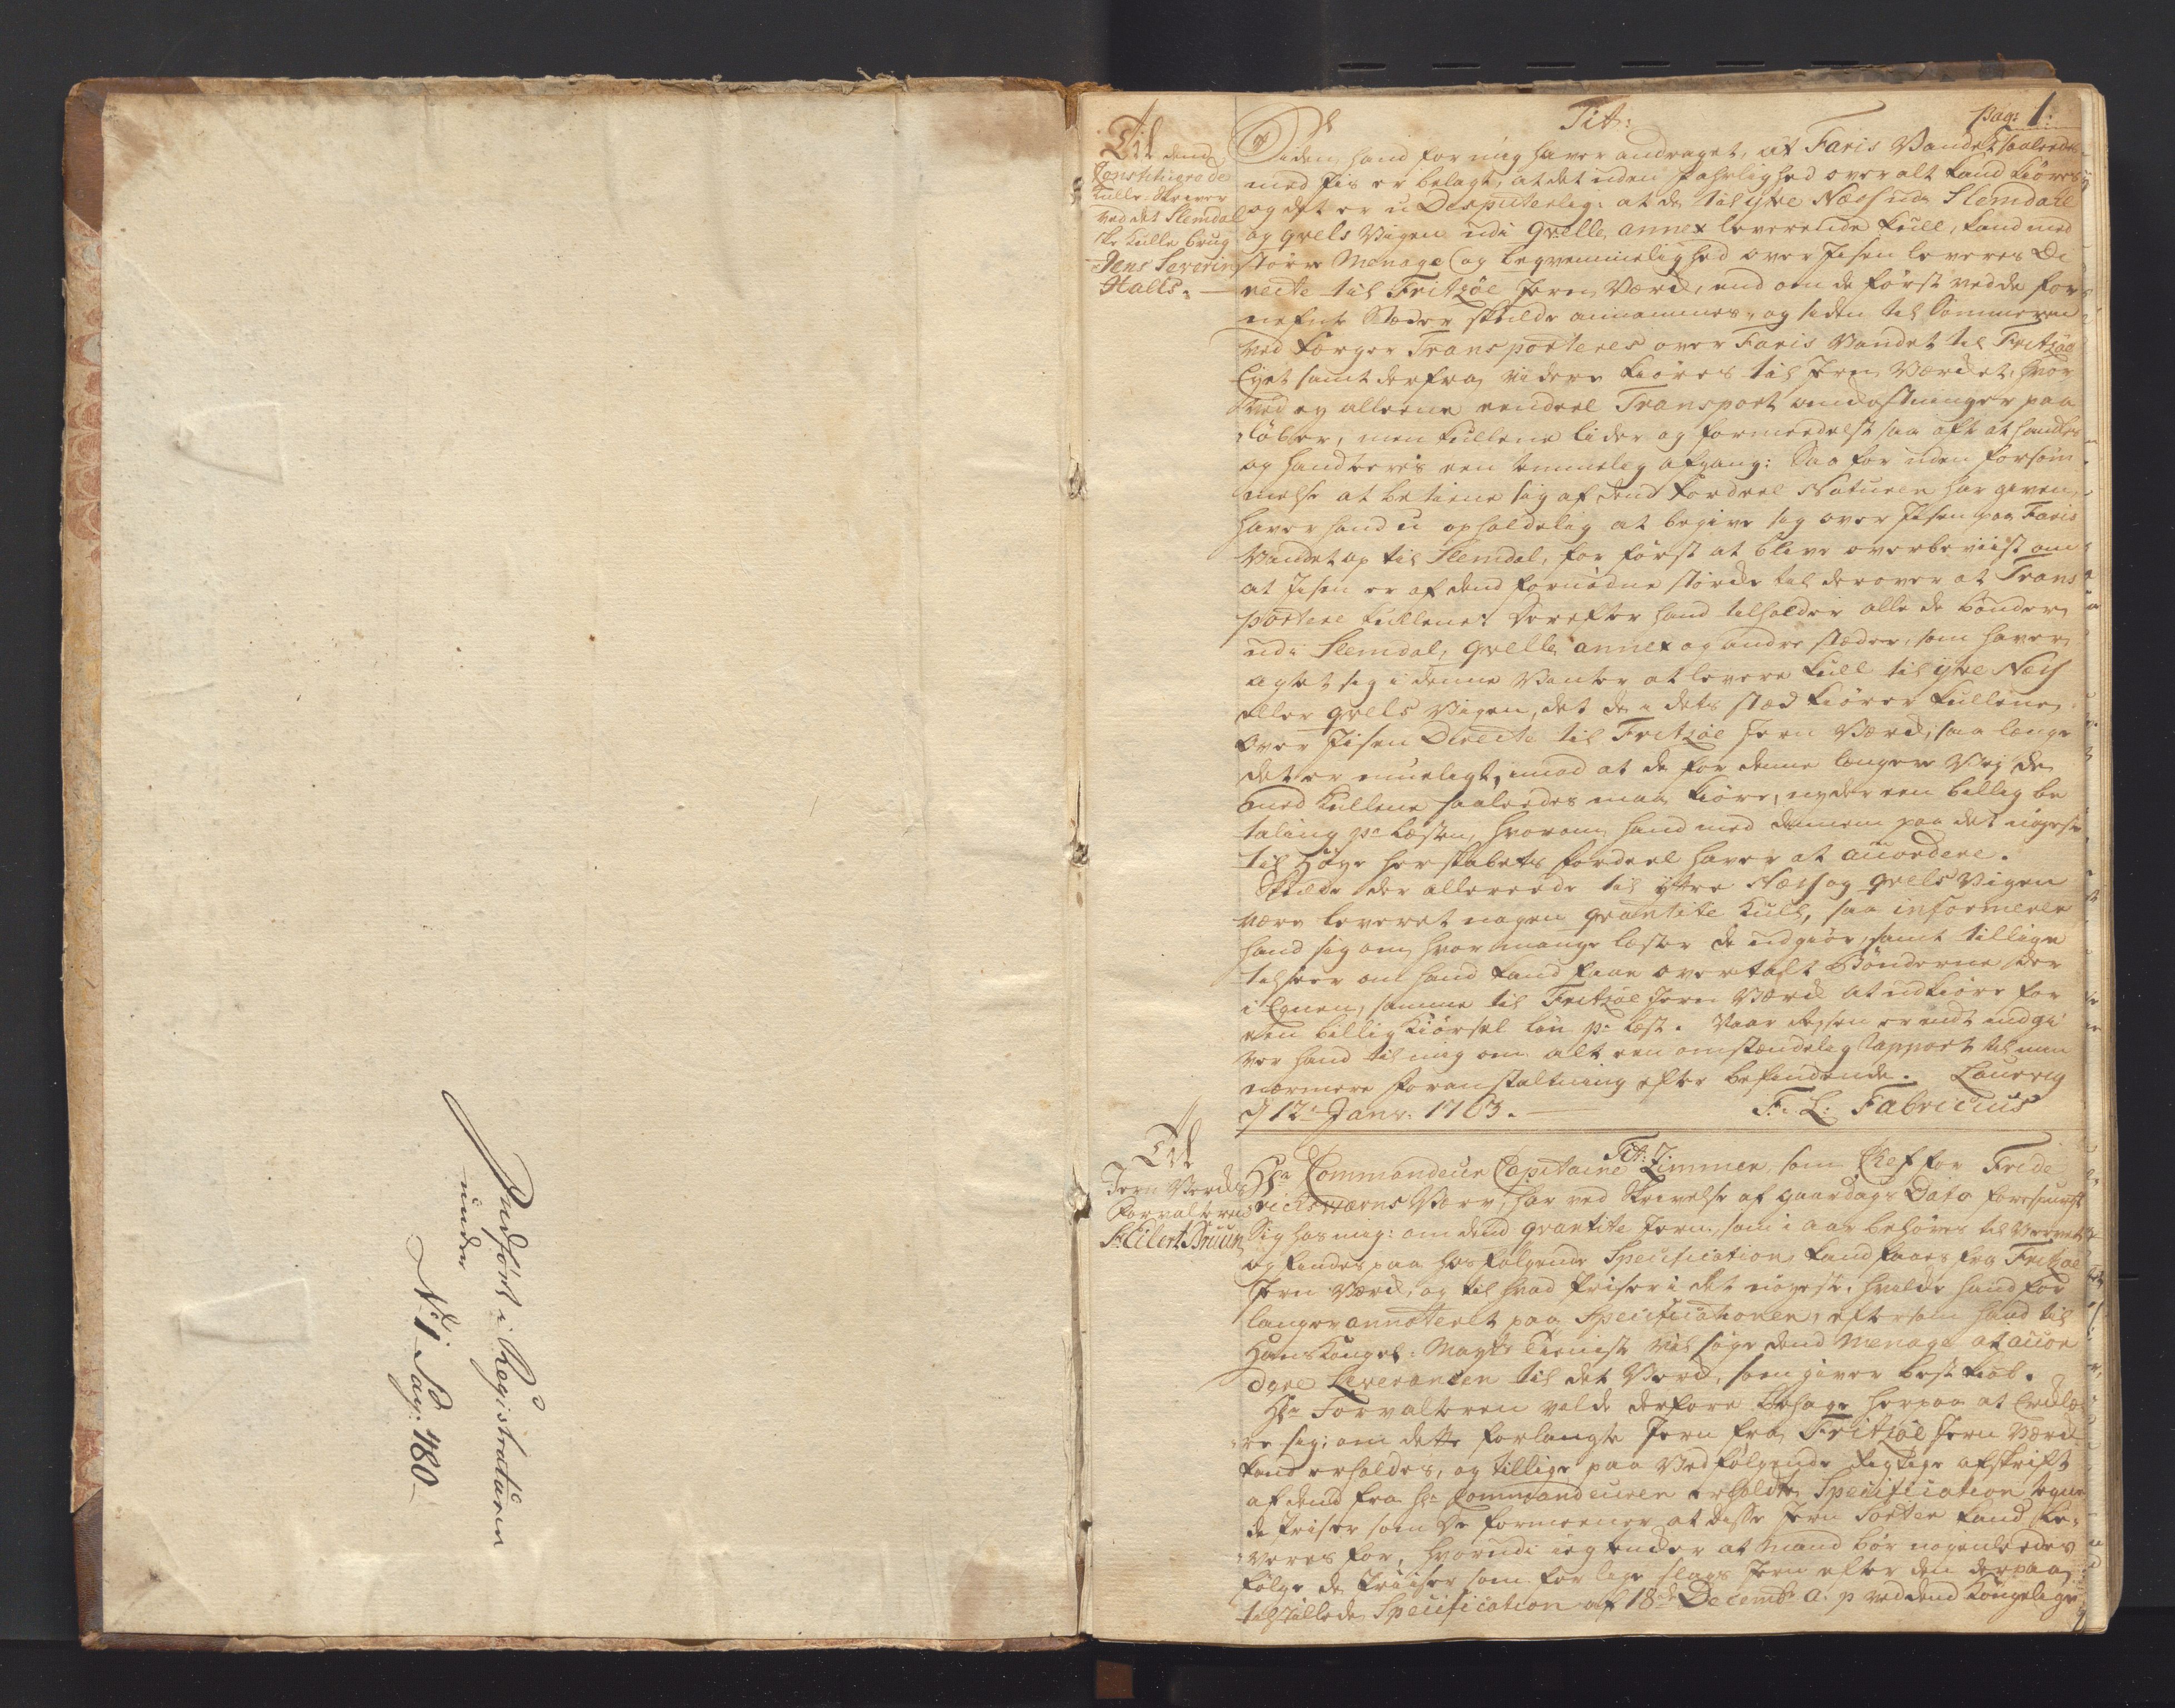 Indført i Registraturen
under
No: 1 Pag: 480
pag: 1.
Tit:
Til dend
Constituerede
Kulle-Skriver
ved det Slemdal
ske Kulle brug
Jens Severin
Halts.
Siden hand for mig haver andraget, at Faris Vandet saaledes
med Jis er belagt, at det uden Fahrlighed over alt kand kiøres
og det er u Disputerlig: at de til ytre Næss udi Slemdahl
og qvels Vigen udi qvelle annex leverende Kull, kand med
større Menage og beqvemmelighed over Jisen leveres Di
recte til Fritzøe Jern Værck, end om de først ved de for
nefnte Stæder skulde annammes, og siden til Sommeren
ved Farger Transporteres over Faris Vandet til Fritzøe
Eyet samt derfra videre kiøres til Jern Værcket, hvor
ved ey alleene eendeel Transport omkostninger paa
løber, men Kullene lider og formedelst saa ofte at handles
og handteeris een temmelig afgang: Saa for uden forsøm
melse at betiene sig af dend Fordeel Naturen har given,
haver hand u opholdelig at begive sig over Jisen paa Faris
Vandet op til Slemdal, for først at blive overbeviist om
at Jisen er af dend fornødne størcke til derover at Trans
portere Kullene: Derefter hand tilholder alle de bønder
udi Slemdal, qvelle annex og andre stæder, som haver
agtet sig i denne Vinter at levere Kull til ytre Næss
eller qvels Vigen, det de i dets stæd kiører Kullene
over Jisen Directe til Fritzøe Jern Værck, saa længe
det er mueligt, imod at de for denne længere Vej de
med Kullene saaledes maa kiøre, nyder een billig be
taling pr Læsten, hvorom hand med dennem paa det nøyeste
til Høye herskabets fordeel haver at accordere.
Skulde der allereede til ytre Næss og qvels Vigen
være leveret nogen qvantite Kull, saa informerer
hand sig om, hvor mange læster de udgiør, samt tillige
tilseer om hand kand faae overtalt Bønderne der
i Egnen, samme til Fritzøe Jern Værck at udkiøre for
een billig Kiørsel løn pr læst. Naar Reysen er endt indgi
ver hand til mig om alt een omstændelig Rapport til min
nærmere foranstaltning efter befindende. Laurvig
d 12te Janv: 1763.
F: L: Fabricius
Til
Jern Verks
Forvalteren
Sr Eilert Bruun
Tit:
Hr Commandeur Capitaine Zimmer, som Chef for Fride
richsværns Værv, har ved Skrivelse af gaardags Dato foresp��rgt
sig hos mig: om dend qvantite Jern, som i aar behøves til Værvet
og findes paa hosfølgende Specification, kand faaes fra Fritzøe
Jern Værck, og til hvad Priser i det nøyeste, hvilke hand for
langer annoteret paa Specificationen, eftersom hand til
Hans Kongel: Mayts Tieniste vil søge dend Menage at accor
dere Leverancen til det Værck, som giver best kiøb.
Hr Forvalteren vilde derfore behage herpaa at Erklæ
re sig: om dette forlangte Jern fra Fritzøe Jern Værck
kand erholdes, og tillige paa Vedfølgende rigtige afskrift
af dend fra Hr Commandeuren erholdte Specification tegne
de Priser som De formeener at disse Jern Sorter kand le-
veres for, hvorudi ieg tencker at mand bør nogenleedes
følge de Priiser som for lige slags Jern efter den derpaa
tilstillede Specification af 18de Decembr a: p ved dend Kongelige